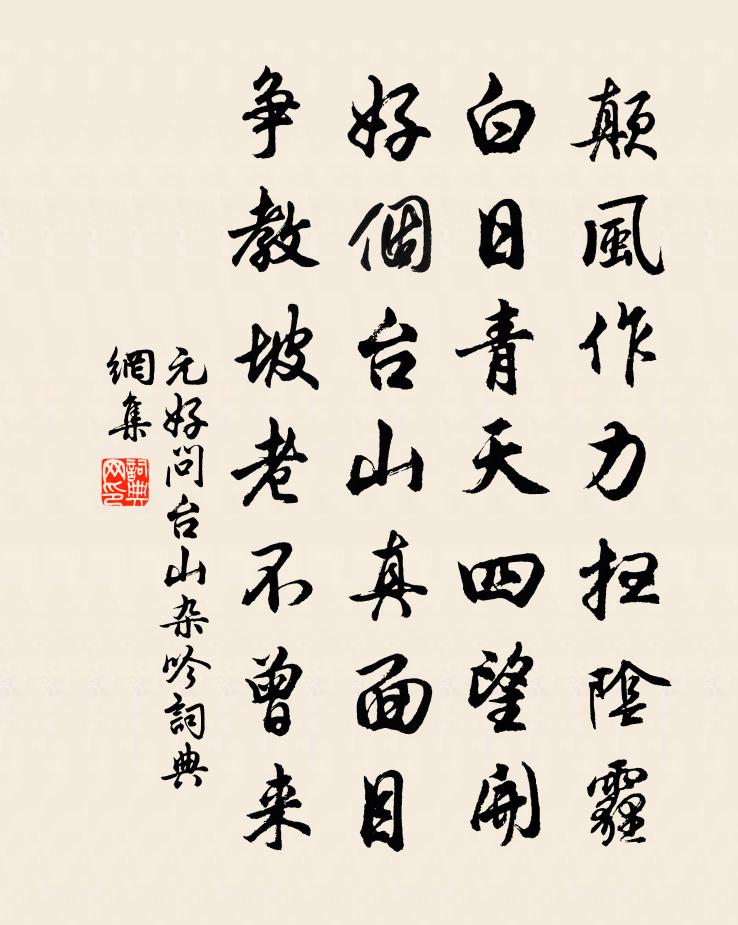 顛風作力掃陰霾
白日青天四望開
好個台山真面目
争教坡老不曾来
元好问台山杂吟詞典
網集
詞典网印